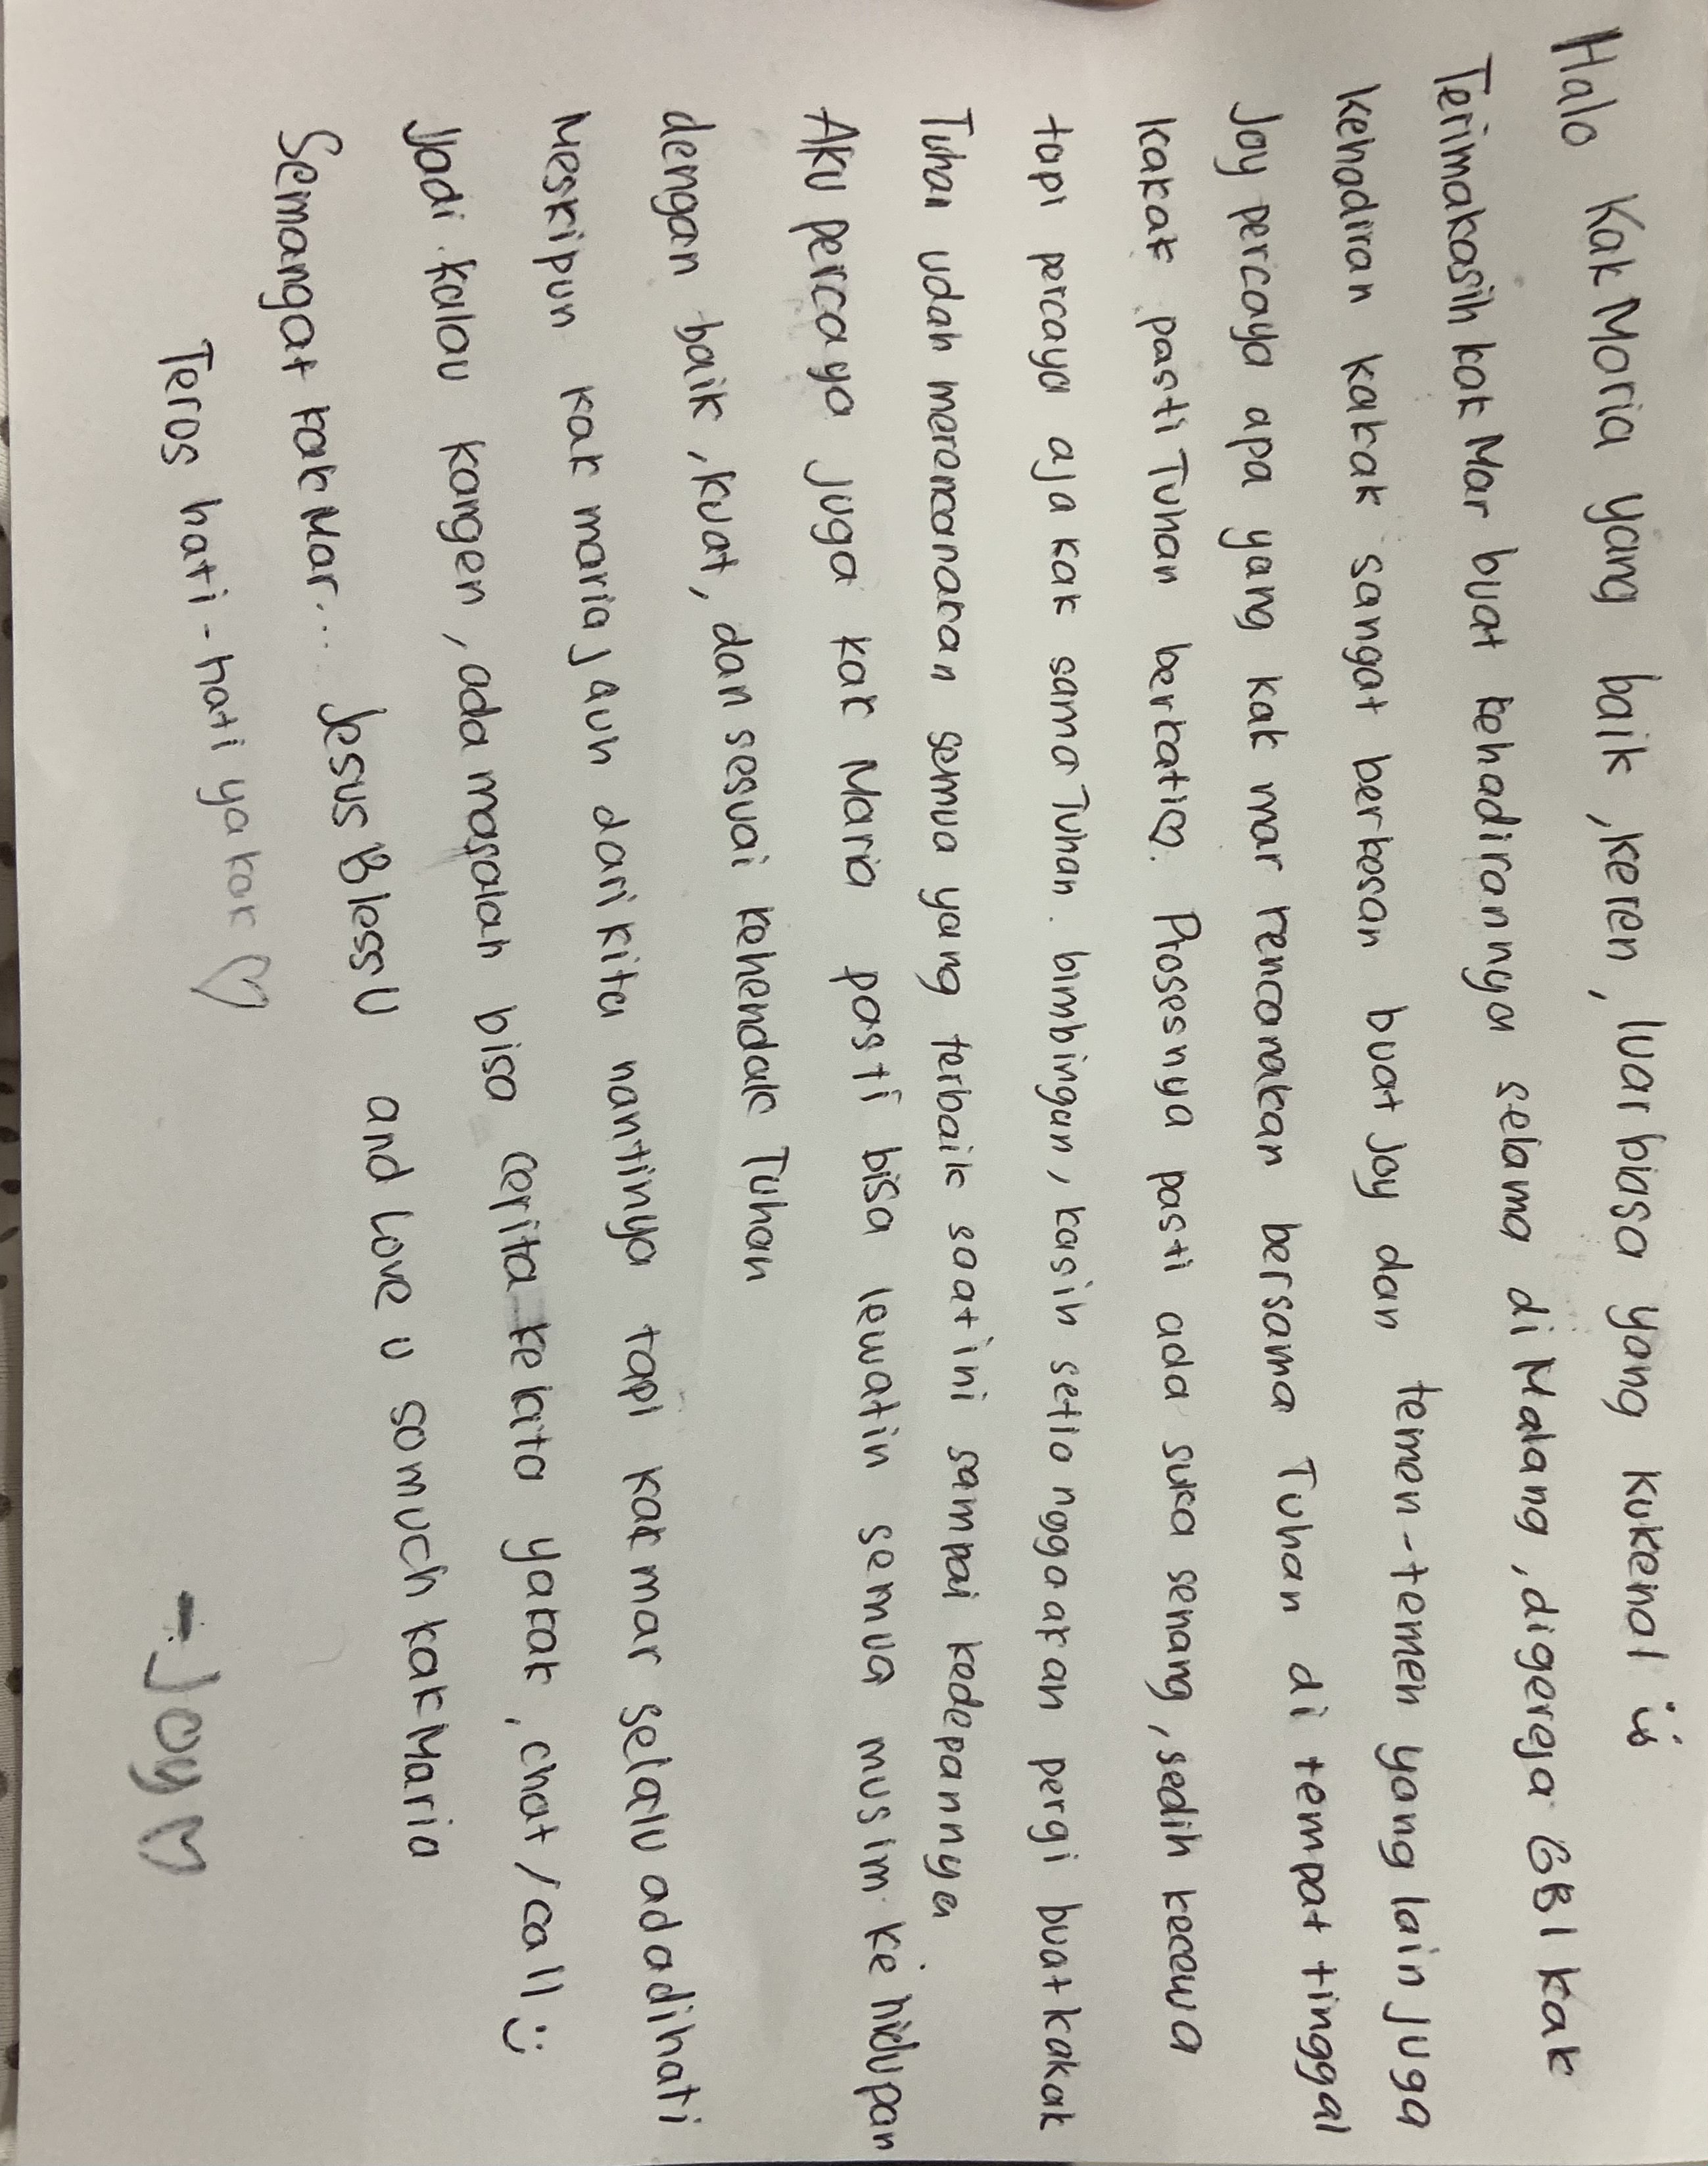 Halo Kak Maria yang baik, keren, luar biasa yang kukenal :)
Terimakasih kak Mar buat kehadirannya selama di Malang, digereja GBI kak
kehadiran kakak sangat berkesan buat Joy dan temen-temen yang lain juga
Joy percaya apa yang kak mar rencanakan bersama Tuhan di tempat tinggal
kakak pasti Tuhan berkati♡. Prosesnya pasti ada suka senang, sedih kecewa
tapi percaya aja kak sama Tuhan. bimbingan, kasih setia nggaakan pergi buat kakak
Tuhan udah merencanakan semua yang terbaik saat ini sampai kedepannya
Aku percaya juga kak Maria pasti bisa lewatin semua musim kehidupan
dengan baik, kuat, dan sesuai kehendak Tuhan
Meskipun kak maria jauh dari kita nantinya tapi kak mar selalu ada dihati
Jadi kalau kangen, ada masalah bisa cerita ke kita yakak, chat/call :)
Semangat kak Mar... Jesus Bless U and Love u somuch kak Maria
Teros hati-hati ya kak ♡
-Joy ♡